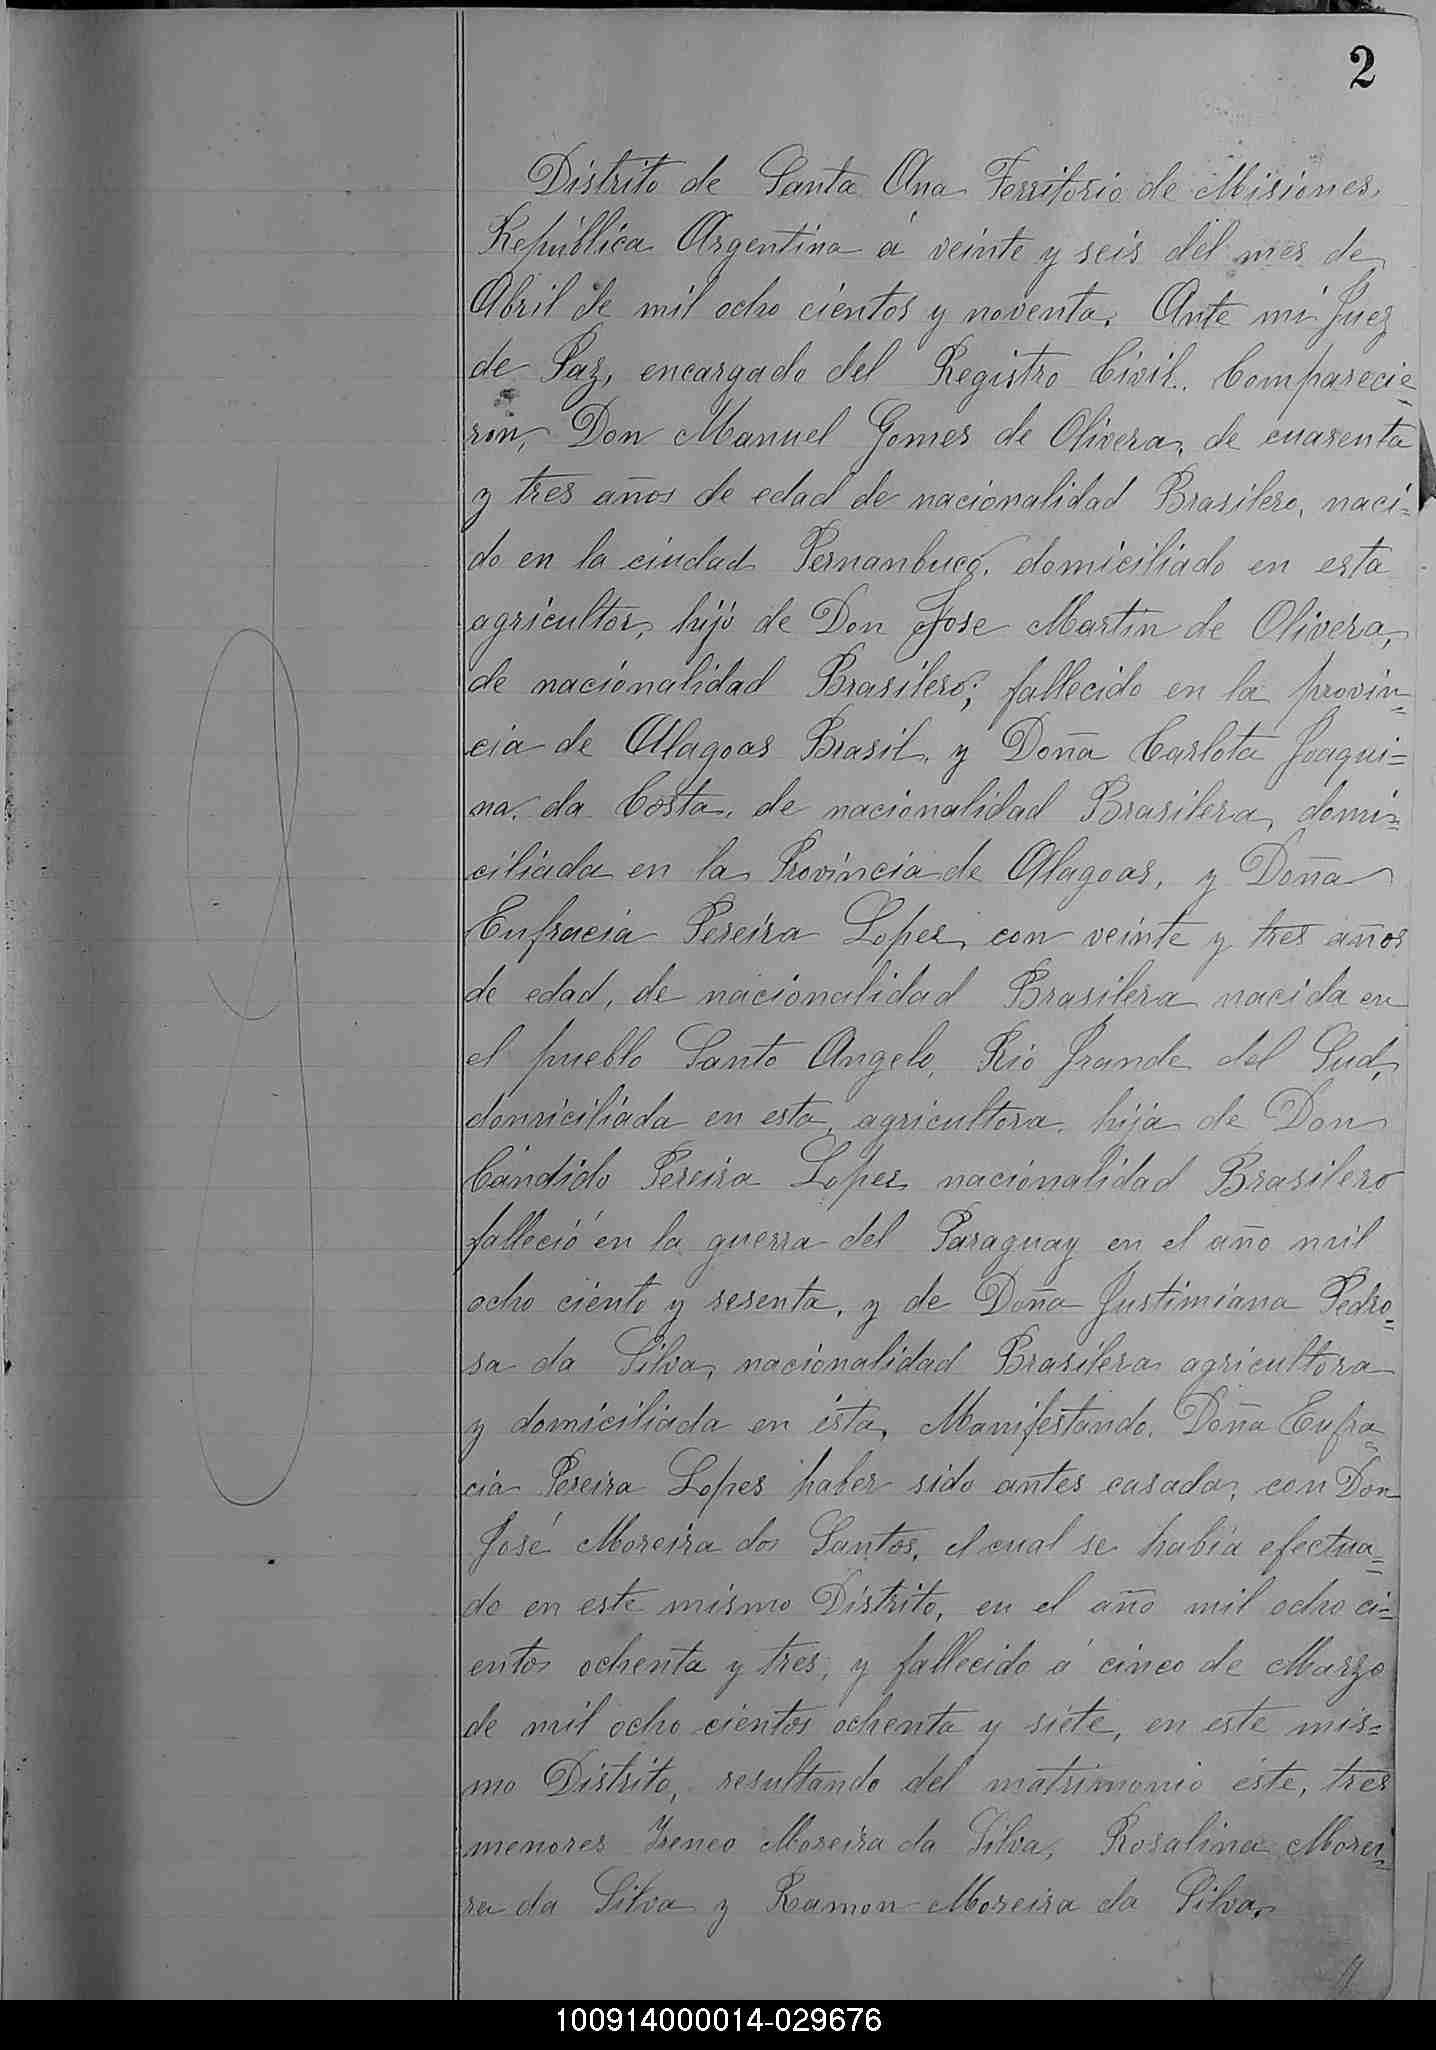 2
Distrito de Santa Ana Territorio de Misiones
República Argentina á veinte y seis del mes de
Abril de mil ocho cientos y noventa. Ante mi Juez
de Paz, encargado del Registro Civil. Comparecie=
ron, Don Manuel Gomes de Olivera, de cuarenta
y tres años de edad de nacionalidad Brasilero, naci=
do en la ciudad Pernanbuco, domiciliado en esta
agricultor, hijo de Don Jose Martin de Olivera,
de nacionalidad Brasilero; fallecido en la provin=
cia de Alagoas Brasil, y Doña Carlota Joaqui=
na da Costa, de nacionalidad Brasilera, domi=
ciliada en la Provincia de Alagoas, y Doña
Eufracia Pereira Lopes, con veinte y tres años
de edad, de nacionalidad Brasilera nacida en
el pueblo Santo Angelo, Rio Grande del Sud,
domiciliada en esta, agricultora, hija de Don
Cándido Pereira Lopes nacionalidad Brasilero
falleció en la guerra del Paraguay en el año mil
ocho ciento y sesenta, y de Doña Justimiana Pedro=
sa da Silva, nacionalidad Brasilera agricultora
y domiciliada en ésta, Manifestando, Doña Eufra=
cia Pereira Lopes haber sido antes casada, con Don
José Moreira dos Santos, el cual se había efectua=
do en este mismo Distrito, en el año mil ocho ci=
entos ochenta y tres, y fallecido á cinco de Marzo
de mil ocho cientos ochenta y siete, en este mis=
mo Distrito, resultando del matrimonio éste, tres
menores Ireneo Moreira da Silva, Rosalina Morei=
ra da Silva y Ramon Moreira da Silva.
100914000014-029676